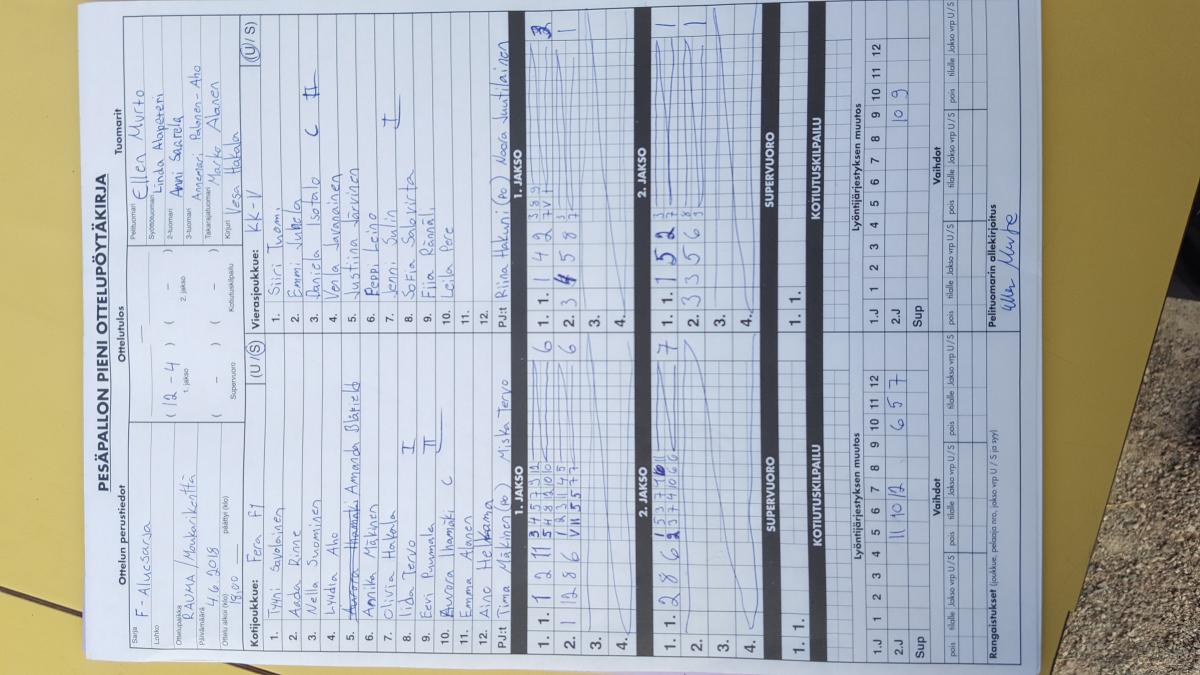 PESÄPALLON PIENI OTTELUPÖYTÄKIRJA
Ottelun perustiedot
Sarja F-Aluesarja
Lohko
Ottelupaikka RAUMA / Monkarikenttä
Päivämäärä 4.6.2018
Ottelu alkoi (klo) 18.00 päättyi (klo)
Ottelutulos
( 12 - 4 ) ( - )
1. jakso 2. jakso
( - ) ( - )
Supervuoro Kotiutuskilpailu
Tuomarit
Pelituomari Ellen Murto
Syöttötuomari Linda Alapeteri
2-tuomari Anni Saarela
3-tuomari Annemari Palonen-Aho
Takarajatuomari Marko Alanen
Kirjuri Vesa Hakala
Kotijoukkue: Fera F1 (U / S)
1. Tyyni Savolainen
2. Aada Rinne
3. Nella Suominen
4. Lyydia Aho
5. Aurora Ihamäki Amanda Blåfield
6. Annika Mäkinen
7. Olivia Hakala
8. Iida Tervo I
9. Eevi Puumala II
10. Aurora Ihamäki C
11. Emma Alanen
12. Aino Helkama
PJ:t Timo Mäkinen (PJ) Miska Tervo
Vierasjoukkue: KK-V (U / S)
1. Siiri Tuomi
2. Emmi Juhela
3. Daniela Isotalo C II
4. Venla Javanainen
5. Justiina Järvinen
6. Peppi Leino
7. Jenni Sulin I
8. Sofia Salovirta
9. Fiia Rännäli
10. Leila Pere
11.
12.
PJ:t Riina Hakuni (PJ) Noora Juutilainen
1. JAKSO
1. 1. 1 2 11 6
2. 1 12 8 6 6
3.
4.
1. JAKSO
1. 1. 1 4 2
2. 3 4 5 8 1
3.
4.
2. JAKSO
1. 1. 2 8 6 7
2.
3.
4.
2. JAKSO
1. 1. 1 5 2 1
2. 3 3 5 6 1
3.
4.
SUPERVUORO
1. 1.
SUPERVUORO
1. 1.
KOTIUTUSKILPAILU
KOTIUTUSKILPAILU
Lyöntijärjestyksen muutos
1.J 1 2 3 4 5 6 7 8 9 10 11 12
2.J 11 10 12 6 5 7
Sup
Lyöntijärjestyksen muutos
1.J 1 2 3 4 5 6 7 8 9 10 11 12
2.J 10 9
Sup
Vaihdot
pois tilalle Jakso vrp U / S pois tilalle Jakso vrp U / S
Vaihdot
pois tilalle Jakso vrp U / S pois tilalle Jakso vrp U / S
Rangaistukset (joukkue, pelaaja nro, jakso vrp U / S ja syy)
Pelituomarin allekirjoitus
Ellen Murto